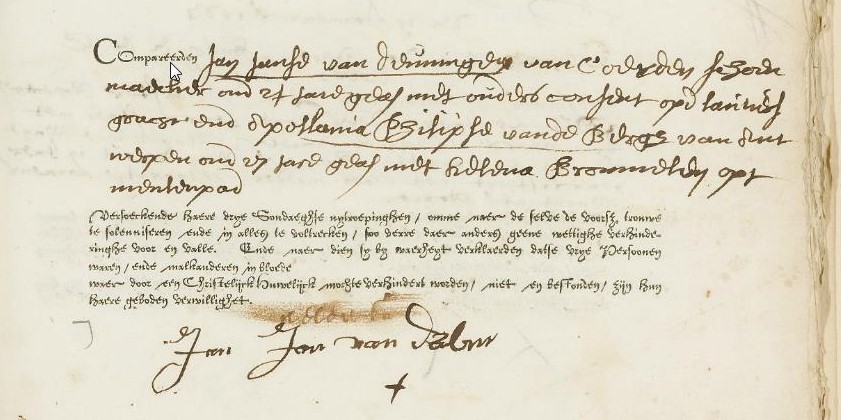 Compareerden Jan Janse van Deuningen van Coerden schoen
maecker out 24 jare geas met ouders consent op lauriers
graght end Apollonia Philipse vande Bergh van Ant
werpen out 27 jare geas met Helena Brommelen opt
meulenpad
Versoeckende haere drye Sondaeghse uytroepinghen / omme naer de selve de voorsz. trouwe
te solenniseren ende in alles te voltrecken / soo verre daer anders geene wettighe verhinde-
ringhe voor en valle. Ende naer dien sy by waerheyt verklaerden datse vrye Persoonen
waren / ende malkanderen in bloede
waer door een Christelijck Huwelijck mochte verhindert worden / niet en bestonden / zijn hun
haere geboden verwillighet.
Jan Jan van
+